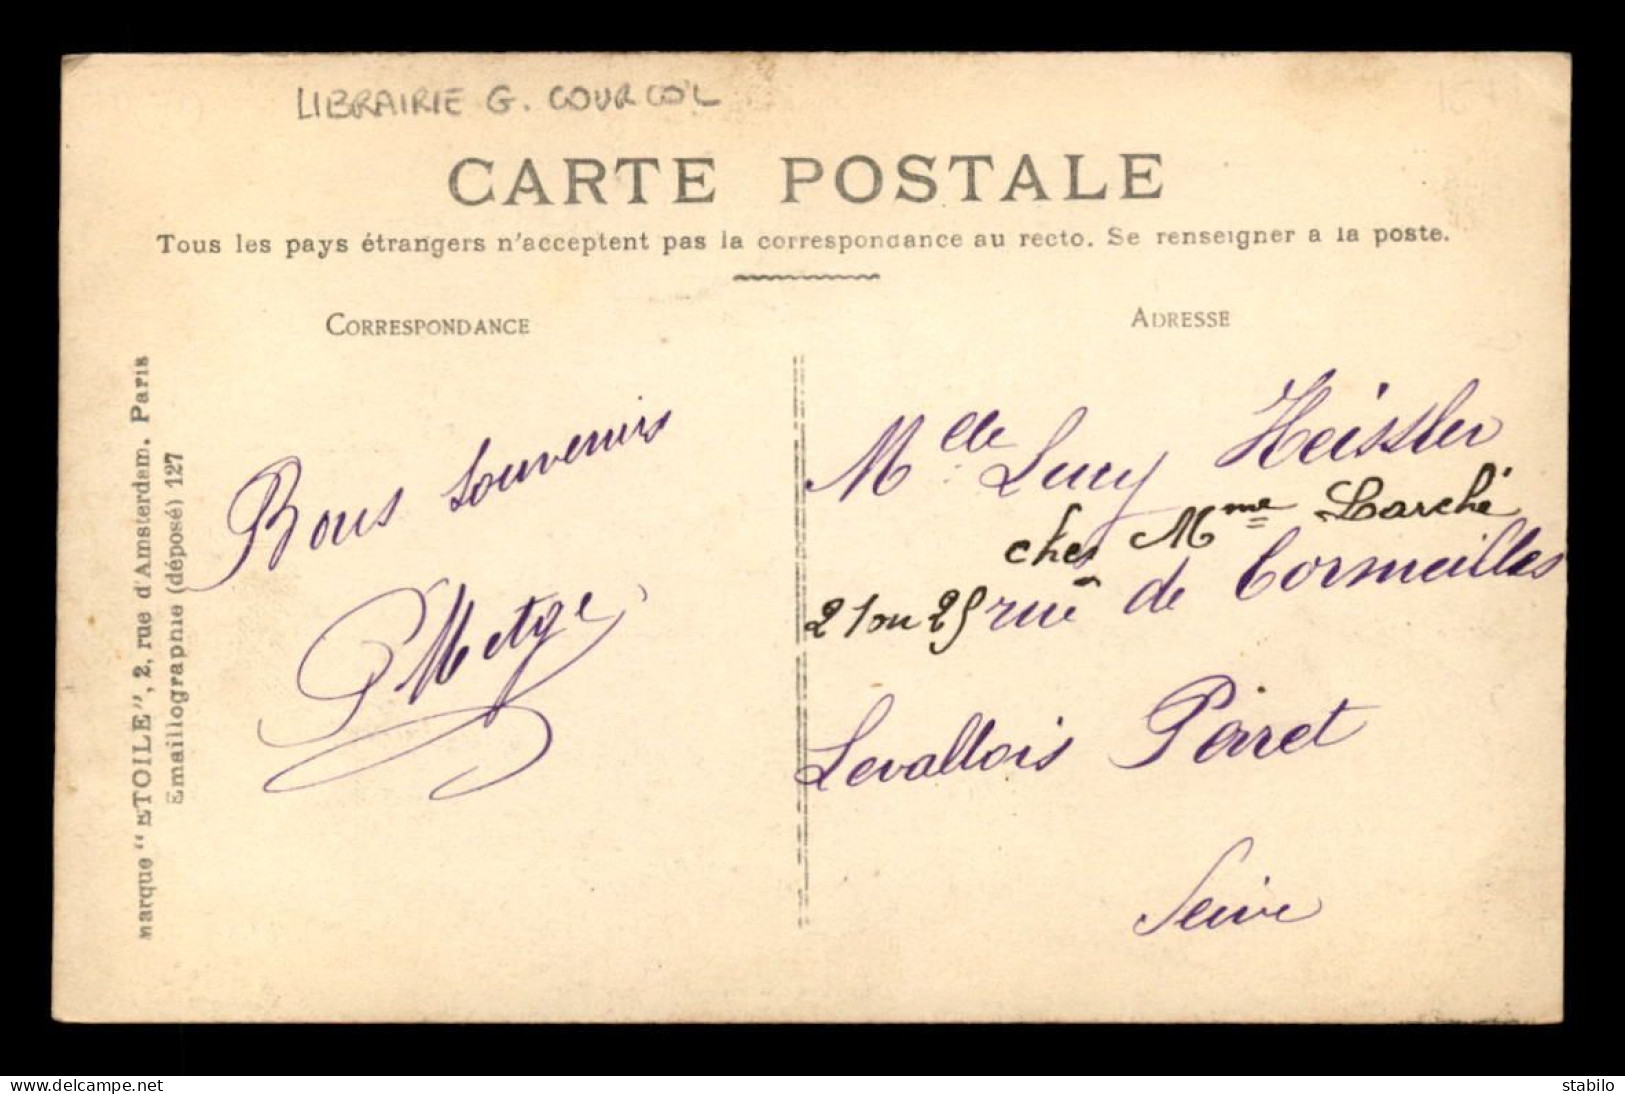 LIBRAIRIE G. COURCOL
CARTE POSTALE
Tous les pays étrangers n'acceptent pas la correspondance au recto. Se renseigner a la poste.
CORRESPONDANCE
ADRESSE
marque "ETOILE", 2, rue d'Amsterdam. Paris
Emaillographie (déposé) 127
Bons souvenirs
Metge
Mlle Lucy Heissler
chez Mme Larché
21 ou 25 rue de Cormeilles
Levallois Perret
Seine
www.delcampe.net
stabilo